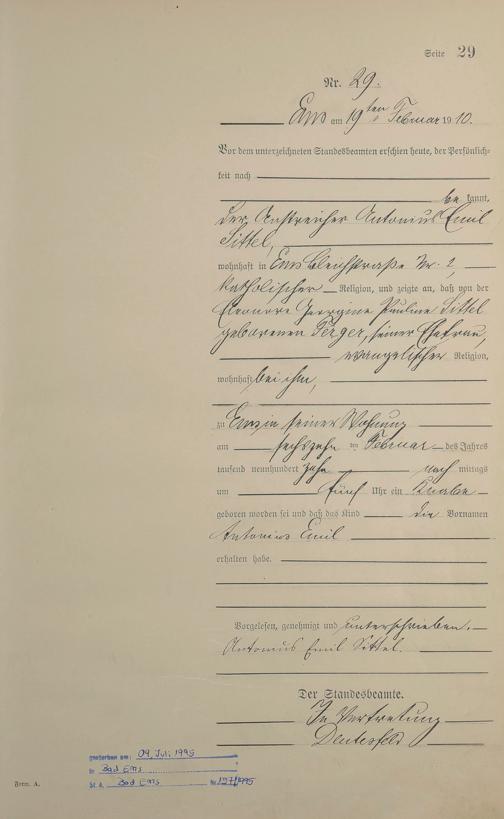 Seite 29
Nr. 29.
Ems am 19ten Februar 1910.
Vor dem unterzeichneten Standesbeamten erschien heute, der Persönlich-
keit nach
be kannt,
der Anstreicher Antonius Emil
Sittel,
wohnhaft in Ems Bleichstraße Nr. 2,
katholischer Religion, und zeigte an, daß von der
Eleonore Georgine Pauline Sittel
geborenen Ferger, seiner Ehefrau,
evangelischer Religion,
wohnhaft bei ihm,
zu Ems in seiner Wohnung
am sechszehnten Februar des Jahres
tausend neunhundert zehn nach mittags
um fünf Uhr ein Knabe
geboren worden sei und daß das Kind die Vornamen
Antonius Emil
erhalten habe.
Vorgelesen, genehmigt und unterschrieben.
Antonius Emil Sittel.
Der Standesbeamte.
In Vertretung
gestorben am: 09. Juli 1995
in Bad Ems
St. A. Bad Ems Nr. 127/1995
Form. A.